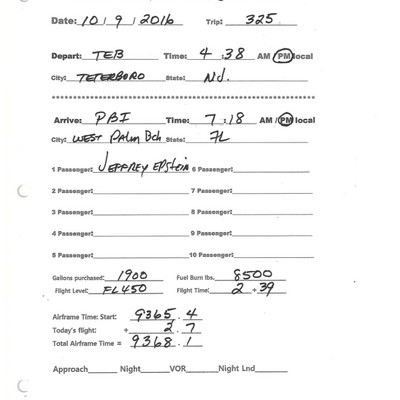 Date: 10 / 9 / 2016 Trip: 325
Depart: TEB Time: 4 : 38 AM / PM local
City: TETERBORO State: NJ.
Arrive: PBI Time: 7 : 18 AM / PM local
City: WEST PALM Bch State: FL
1 Passenger: JEFFREY EPSTEIN 6 Passenger:
2 Passenger: 7 Passenger:
3 Passenger: 8 Passenger:
4 Passenger: 9 Passenger:
5 Passenger: 10 Passenger:
Gallons purchased: 1900 Fuel Burn lbs. 8500
Flight Level: FL450 Flight Time: 2 + 39
Airframe Time: Start: 9365 . 4
Today's flight: + 2 . 7
Total Airframe Time = 9368 . 1
Approach Night VOR Night Lnd